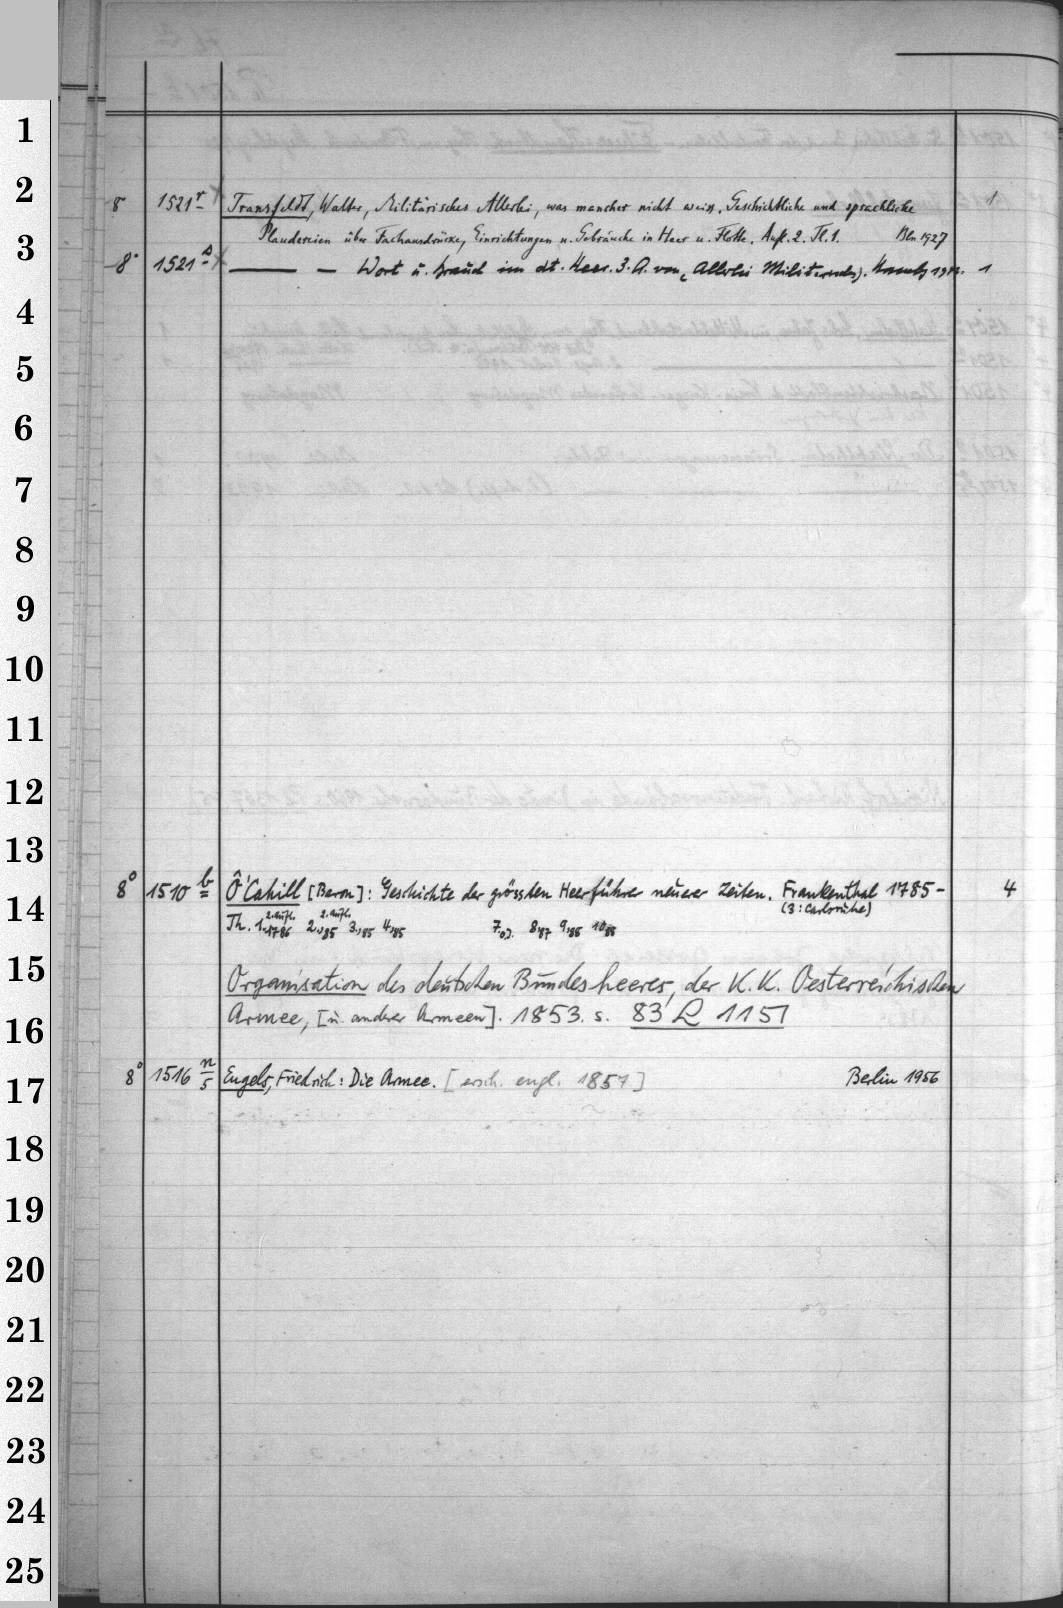 1
2
8° 1521r Transfeldt, Walter, Militärisches Allerlei, was mancher nicht weiss. Geschichtliche und sprachliche 1
Plaudereien über Fachausdrücke, Einrichtungen u. Gebräuche in Heer u. Flotte. Aufl. 2. Tl. 1. Bln 1927
3
8° 1521s — — Wort u. Brauch im dt. Heer. 3. A. von 1
4
5
6
7
8
9
10
11
12
13
8° 1510 b O'Cahill [Baron]: Geschichte der grössten Heerführer neuerer Zeiten. Frankenthal 1785- 4
14
2. Aufl. 2. Aufl. (3: Carlsruhe)
Th. 1, 1786 2,85 3,85 4,85 7, o.J. 8,87 9,86 10,88
15
Organisation des deutschen Bundesheeres, der K. K. Oesterreichischen
16
Armee, [u. anderer Armeen]. 1853. s. 83 L 1151
17
8° 1516 n/5 Engels, Friedrich: Die Armee. [ersch. engl. 1857] Berlin 1956
18
19
20
21
22
23
24
25